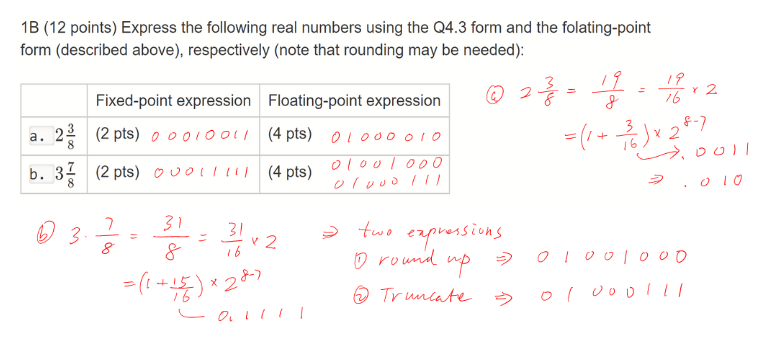 1B (12 points) Express the following real numbers using the Q4.3 form and the folating-point
form (described above), respectively (note that rounding may be needed):
Fixed-point expression Floating-point expression
a. 2 3/8 (2 pts) 00010011 (4 pts) 01000010
b. 3 7/8 (2 pts) 00011111 (4 pts) 01001000
01000111
ⓐ 2 3/8 = 19/8 = 19/16 × 2
= (1 + 3/16) × 2^8-7
→ .0011
⇒ .010
ⓑ 3. 7/8 = 31/8 = 31/16 × 2
= (1 + 15/16) × 2^8-7
0.1111
⇒ two expressions
① round up ⇒ 01001000
② Truncate ⇒ 01000111